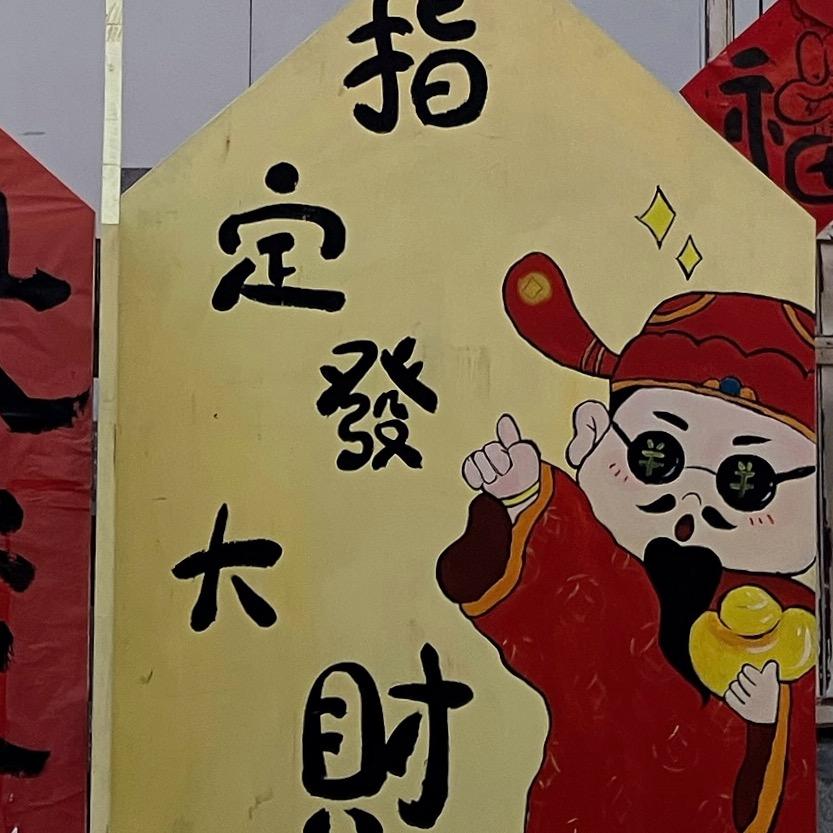 指
定
發
大
財
福